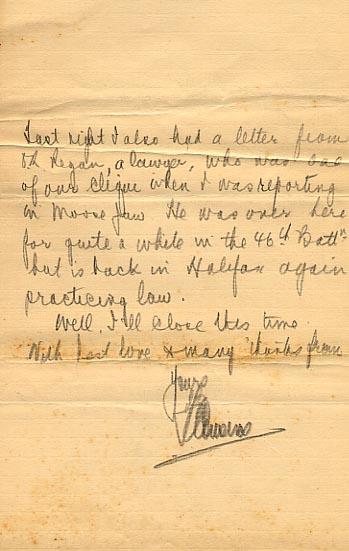 Last night I also had a letter from
Regan, a lawyer, who was one
of our clique when I was reporting
in Moose Jaw He was over here
for quite a while in the 46th Battn
but is back in Halifax again
practicing law.
Well, I'll close this time.
With best love & many thanks from
Yours